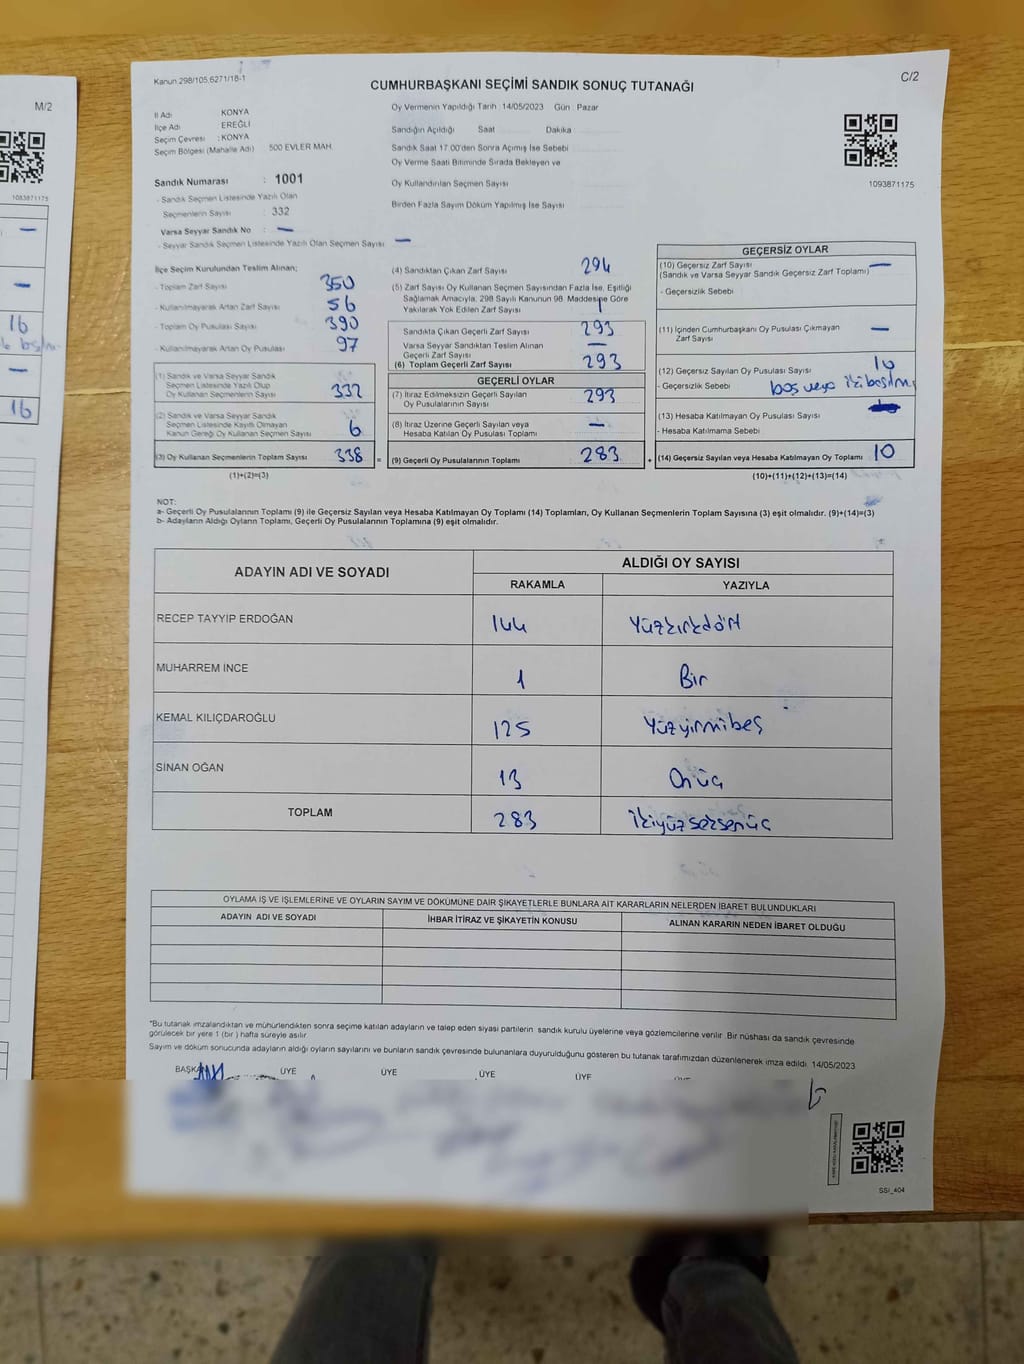 M/2
1093871175
16
16
Kanun 298/105 6271/18-1
CUMHURBAŞKANI SEÇİMİ SANDIK SONUÇ TUTANAĞI
C/2
İl Adı KONYA
İlçe Adı : EREĞLİ
Seçim Çevresi : KONYA
Seçim Bölgesi (Mahalle Adı) 500 EVLER MAH.
Oy Vermenin Yapıldığı Tarih : 14/05/2023 Gün : Pazar
Sandığın Açıldığı Saat Dakika
Sandık Saat 17.00'den Sonra Açımış İse Sebebi
Oy Verme Saati Bitiminde Sırada Bekleyen ve
Oy Kullandırılan Seçmen Sayısı
Birden Fazla Sayım Döküm Yapılmış İse Sayısı
1093871175
Sandık Numarası : 1001
- Sandık Seçmen Listesinde Yazılı Olan
Seçmenlerin Sayısı : 332
Varsa Seyyar Sandık No : —
- Seyyar Sandık Seçmen Listesinde Yazılı Olan Seçmen Sayısı : —
İlçe Seçim Kurulundan Teslim Alınan;
- Toplam Zarf Sayısı 350
- Kullanılmayarak Artan Zarf Sayısı 56
- Toplam Oy Pusulası Sayısı 390
- Kullanılmayarak Artan Oy Pusulası 97
(1) Sandık ve Varsa Seyyar Sandık
Seçmen Listesinde Yazılı Olup
Oy Kullanan Seçmenlerin Sayısı 332
(2) Sandık ve Varsa Seyyar Sandık
Seçmen Listesinde Kayıtlı Olmayan
Kanun Gereği Oy Kullanan Seçmen Sayısı 6
(3) Oy Kullanan Seçmenlerin Toplam Sayısı 338 =
(1)+(2)=(3)
(4) Sandıktan Çıkan Zarf Sayısı 294
(5) Zarf Sayısı Oy Kullanan Seçmen Sayısından Fazla İse, Eşitliği
Sağlamak Amacıyla, 298 Sayılı Kanunun 98. Maddesine Göre
Yakılarak Yok Edilen Zarf Sayısı 1
Sandıkta Çıkan Geçerli Zarf Sayısı 293
Varsa Seyyar Sandıktan Teslim Alınan
Geçerli Zarf Sayısı —
(6) Toplam Geçerli Zarf Sayısı 293
GEÇERLİ OYLAR
(7) İtiraz Edilmeksizin Geçerli Sayılan
Oy Pusulalarının Sayısı 293
(8) İtiraz Üzerine Geçerli Sayılan veya
Hesaba Katılan Oy Pusulası Toplamı —
(9) Geçerli Oy Pusulalarının Toplamı 283 +
GEÇERSİZ OYLAR
(10) Geçersiz Zarf Sayısı —
(Sandık ve Varsa Seyyar Sandık Geçersiz Zarf Toplamı)
- Geçersizlik Sebebi
(11) İçinden Cumhurbaşkanı Oy Pusulası Çıkmayan
Zarf Sayısı —
(12) Geçersiz Sayılan Oy Pusulası Sayısı 10
- Geçersizlik Sebebi boş veya
(13) Hesaba Katılmayan Oy Pusulası Sayısı
- Hesaba Katılmama Sebebi
(14) Geçersiz Sayılan veya Hesaba Katılmayan Oy Toplamı 10
(10)+(11)+(12)+(13)=(14)
NOT:
a- Geçerli Oy Pusulalarının Toplamı (9) ile Geçersiz Sayılan veya Hesaba Katılmayan Oy Toplamı (14) Toplamları, Oy Kullanan Seçmenlerin Toplam Sayısına (3) eşit olmalıdır. (9)+(14)=(3)
b- Adayların Aldığı Oyların Toplamı, Geçerli Oy Pusulalarının Toplamına (9) eşit olmalıdır.
ADAYIN ADI VE SOYADI ALDIĞI OY SAYISI
RAKAMLA YAZIYLA
RECEP TAYYIP ERDOĞAN 144 Yüzkırkdört
MUHARREM İNCE 1 Bir
KEMAL KILIÇDAROĞLU 125 Yüzyirmibeş
SİNAN OĞAN 13 Onüç
TOPLAM 283 İkiyüzseksenüç
OYLAMA İŞ VE İŞLEMLERİNE VE OYLARIN SAYIM VE DÖKÜMÜNE DAİR ŞİKAYETLERLE BUNLARA AİT KARARLARIN NELERDEN İBARET BULUNDUKLARI
ADAYIN ADI VE SOYADI İHBAR İTİRAZ VE ŞİKAYETİN KONUSU ALINAN KARARIN NEDEN İBARET OLDUĞU
"Bu tutanak imzalandıktan ve mühürlendikten sonra seçime katılan adayların ve talep eden siyasi partilerin sandık kurulu üyelerine veya gözlemcilerine verilir. Bir nüshası da sandık çevresinde
görülecek bir yere 1 (bir ) hafta süreyle asılır.
Sayım ve döküm sonucunda adayların aldığı oyların sayılarını ve bunların sandık çevresinde bulunanlara duyurulduğunu gösteren bu tutanak tarafımızdan düzenlenerek imza edildi. 14/05/2023
BAŞKAN ÜYE ÜYE ÜYE ÜYE ÜYE
SSI_404